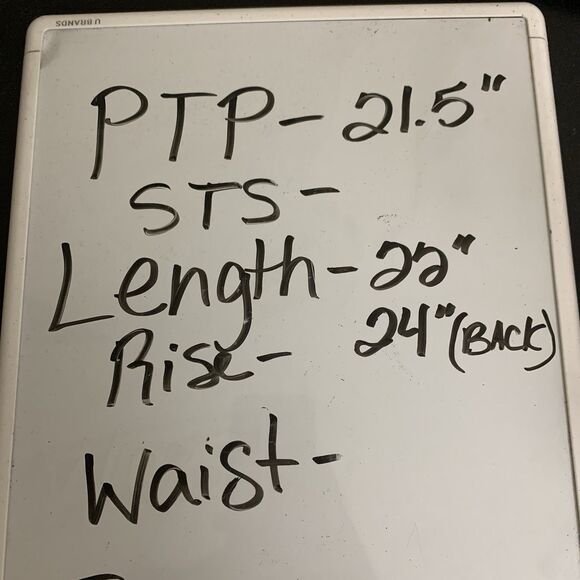 U BRANDS
PTP - 21.5"
STS -
Length - 22"
24" (BACK)
Rise -
Waist -